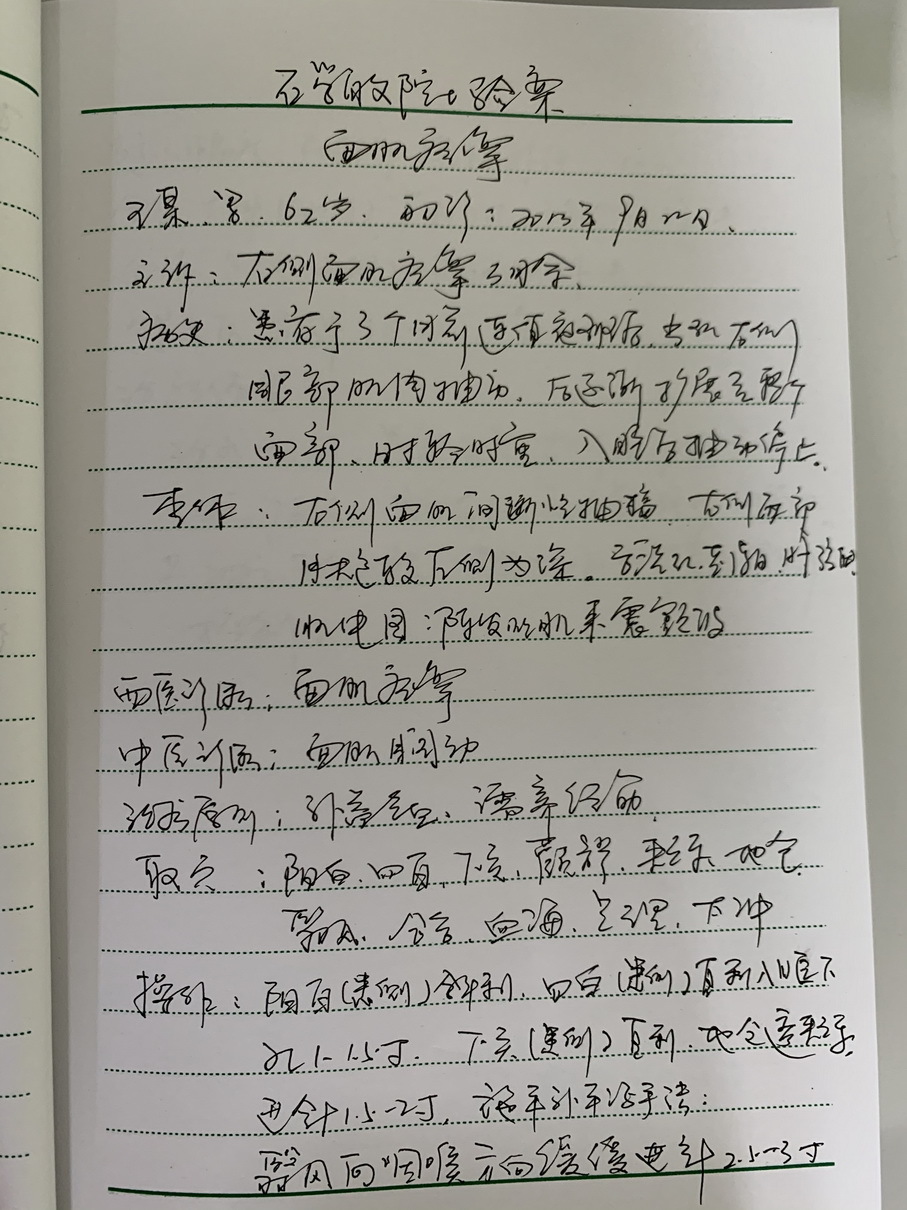 石学敏院士验案
面肌痉挛
王某、男、62岁、初诊：2013年9月22日、
主诉：右侧面肌痉挛3月余、
病史：患者于3个月前 出现右侧
眼部肌肉抽动、后逐渐扩展至整个
面部、时轻时重、入睡后抽动停止。
查体：右侧面肌间断性抽搐、右侧面部
肤色较左侧为深。舌淡红、苔薄白、脉弦细
肌电图：阵发性肌束震颤波
西医诊断：面肌痉挛
中医诊断：面肌瞤动
治疗原则：补益气血、濡养经筋
取穴：阳白、四白、下关、颧髎、颊车、地仓、
翳风、合谷、血海、足三里、太冲
操作：阳白(患侧)斜刺、四白(患侧)直刺入眶下
孔1-1.5寸、下关(患侧)直刺、地仓透颊车
进针1.5-2寸，施平补平泻手法；
翳风向咽喉方向缓慢进针2.5-3寸